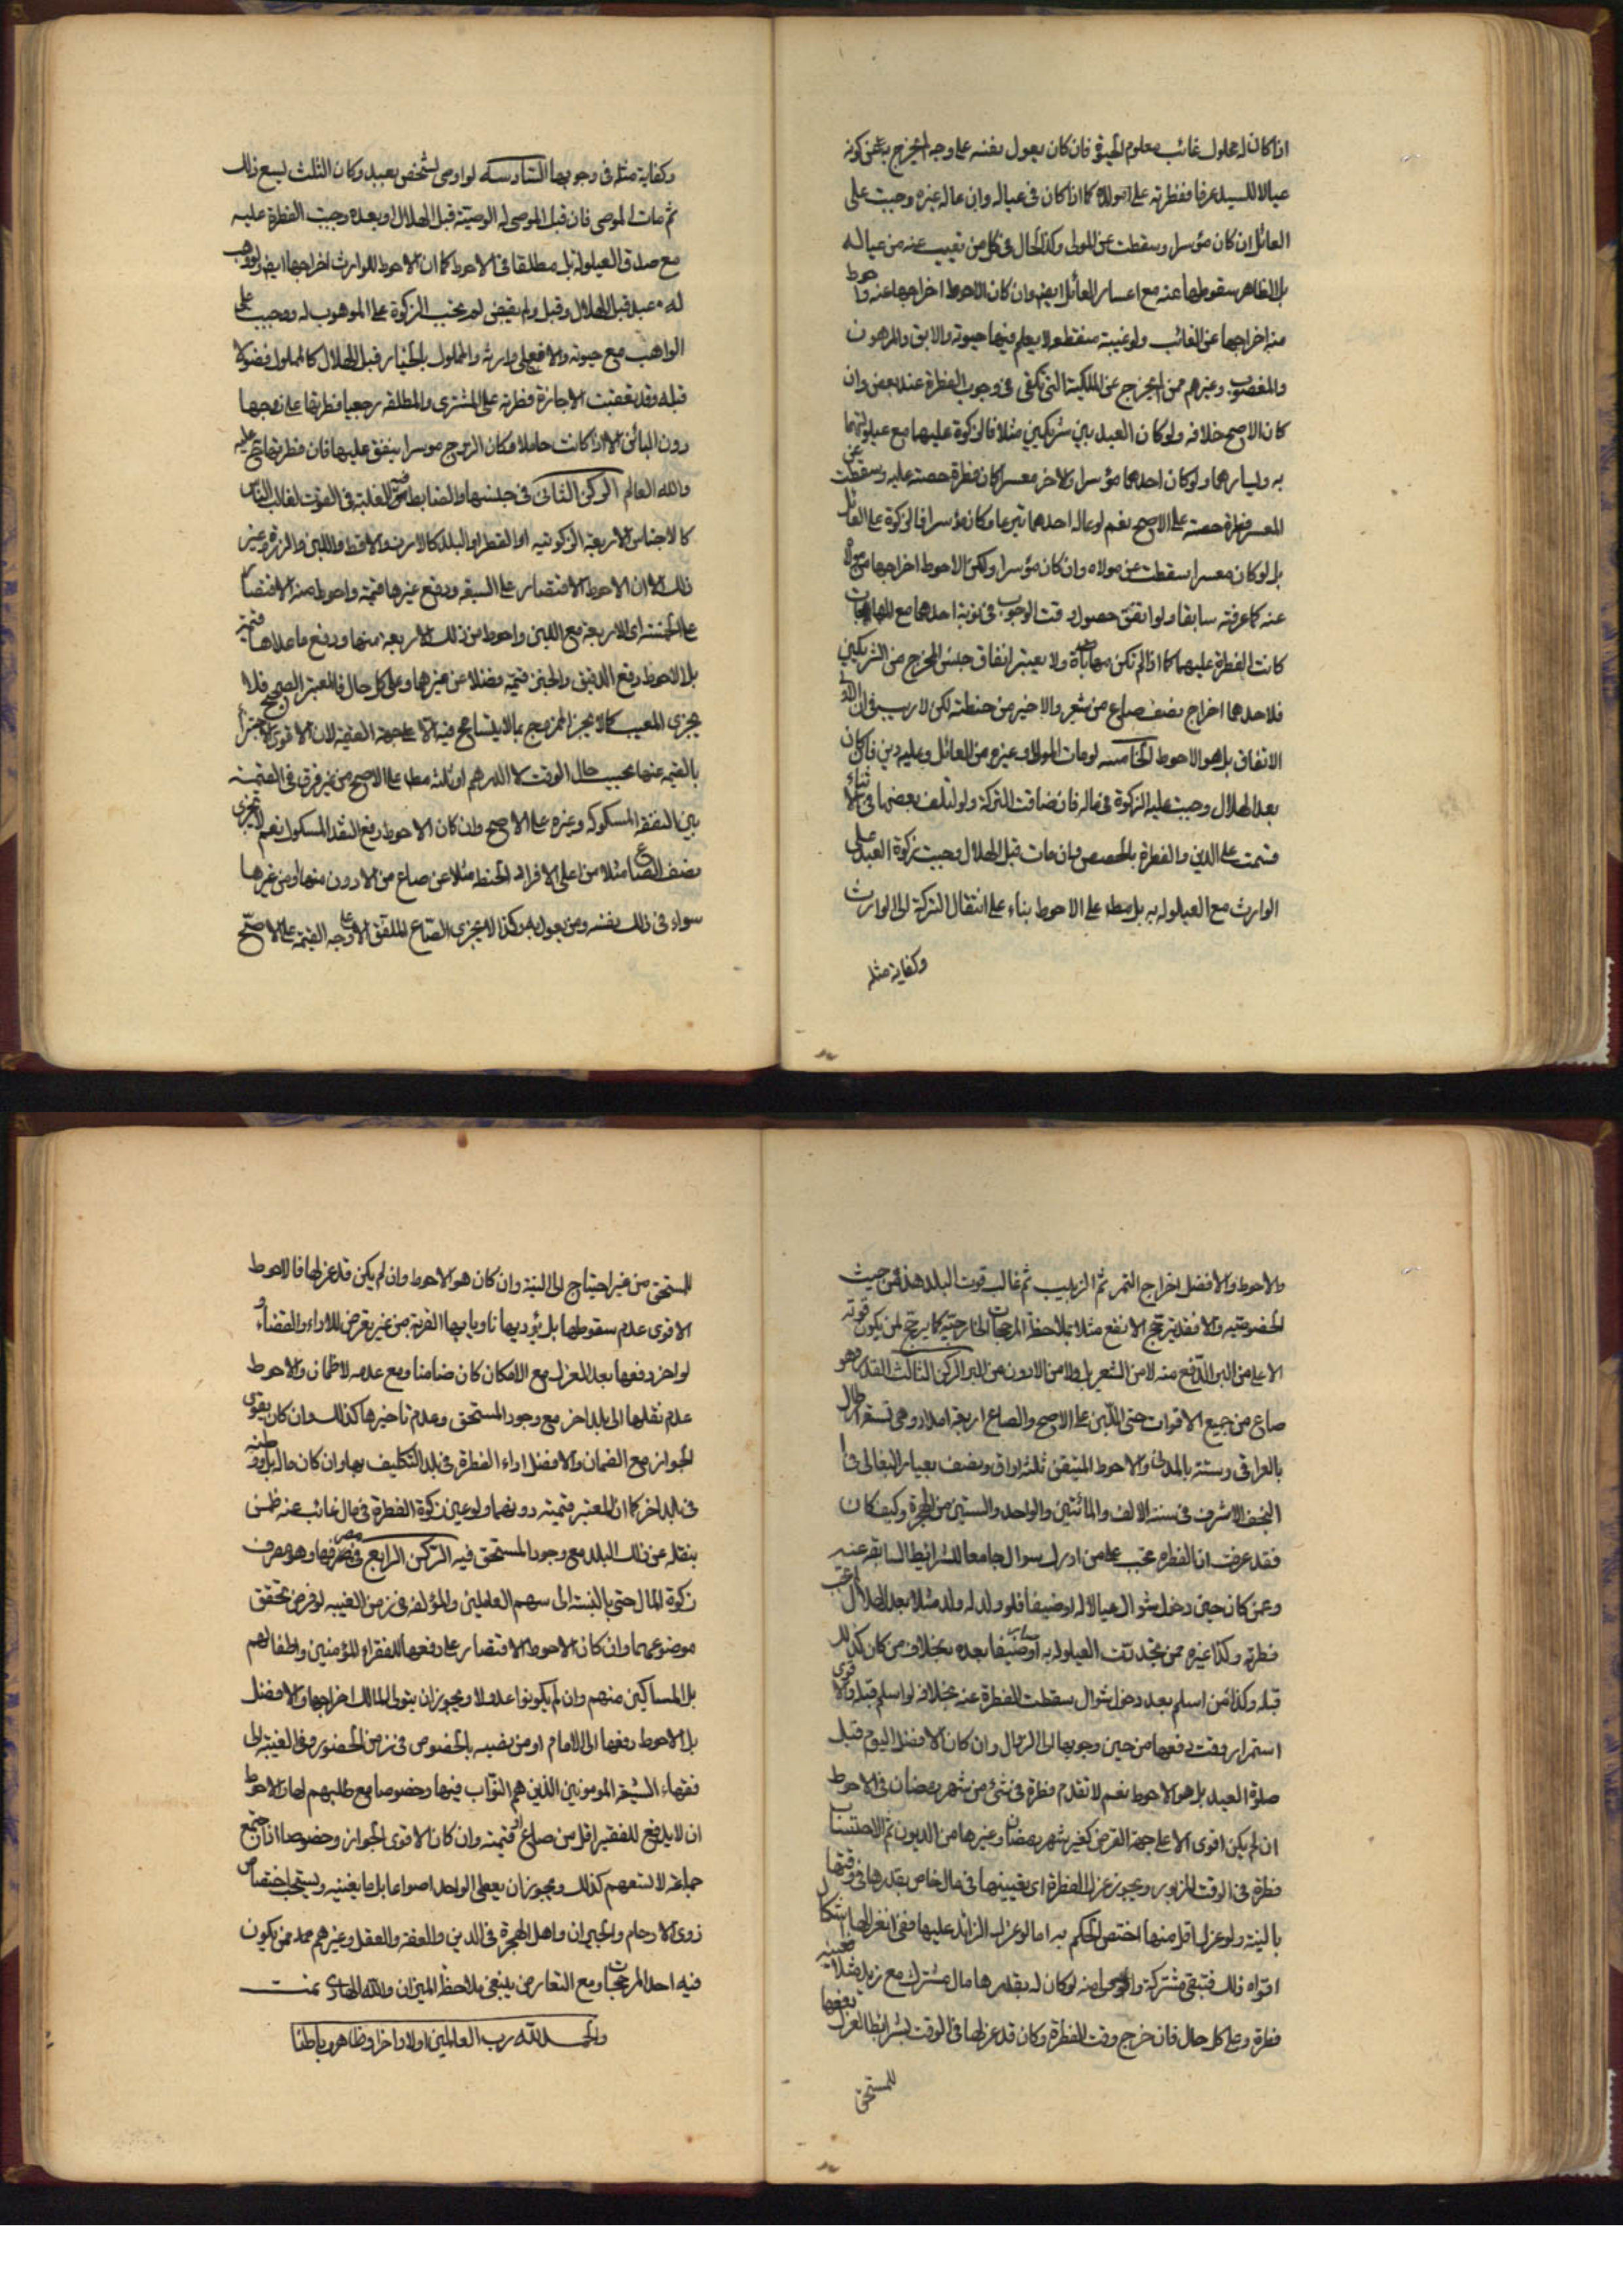 اذا كان له مملوك غائب معلوم الحيوة فان كان يعول نفسه على وجه يخرج به عن كونه
عيالا للسيد عرفا ففطرته على مولاه كما اذا كان في عياله وان عاله غيره وجبت على
العائل ان كان مؤسرا وسقطت عن المولى وكذا الحال في كل من تغيب عنه من عياله
بل الظاهر سقوطها عنه مع اعسار العائل ايض وان كان الاحوط اخراجها عنه واحوط
منه اخراجها عن الغائب ولو غيبة منقطعه لا يعلم فيها حيوته والابق والمرهون
والمغصوب وغيرهم ممن لم يخرج عن الملكية التي تكفي في وجوب الفطرة عند بعض وان
كان الاصح خلافه ولو كان العبد بين شريكين مثلا فالزكوة عليهما مع عيلولتهما
به ويسارهما ولو كان احدهما مؤسرا والاخر معسرا كان فطرة حصته عليه وسقطت عن
المعسر فطرة حصته على الاصح نعم لو عاله احدهما تبرعا وكان مؤسرا فالزكوة على العائل
بل لو كان معسرا سقطت عن مولاه وان كان مؤسرا ولكن الاحوط اخراجها من مولاه
عنه كما عرفته سابقا ولو اتفق حصول وقت الوجوب في نوبة احدهما مع المهاباة
كانت الفطرة عليهما كما اذا لم تكن مهاباة ولا يعتبر اتفاق جنس المخرج من الشريكين
فلاحدهما اخراج نصف صاع من شعير والاخر من حنطة لكن لا ريب في ان الاولى
الاتفاق بل هو الاحوط الخامسه لو مات المولى او غيره من العائل وعليه دين فان كان
بعد الهلال وجبت عليه الزكوة في ماله فان ضاقت التركة ولو لتلف بعضها في الاثناء
قسمت على الدين والفطرة بالحصص وان مات قبل الهلال وجبت زكوة العبد على
الوارث مع العيلوله به بل مطلقا على الاحوط بناء على انتقال التركة الى الوارث
وكفاية مثله
وكفاية مثله في وجوبها السادسه لو اوصى لشخص بعبد وكان الثلث يسع ذلك
ثم مات الموصى فان قبل الموصى له الوصية قبل الهلال او بعده وجبت الفطرة عليه
مع صدق العيلولة بل مطلقا في الاحوط كما ان الاحوط للوارث اخراجها ايض ولو وهب
له عبد قبل الهلال وقبل ولم يقبض لم تجب الزكوة على الموهوب له ووجبت على
الواهب مع حيوته والا فعلى وارثه والمملوك بالخيار قبل الهلال كالمملوك فضولا
قبله وقد تعقبت الاجازة فطرته على المشترى والمطلقه رجعيا فطرتها على زوجها
دون البائن الا اذا كانت حاملا وكان الزوج موسرا ينفق عليها فان فطرتها تجب عليه
والله العالم الركن الثانى فى جنسها والضابط فيه الغلبة في القوت لغالب الناس
كالاجناس الاربعة الزكوتيه او القطر او البلد كالارز والاقط واللبن والذرة وغير
ذلك الا ان الاحوط الاقتصار على السبعه ودفع غيرها قيمة واحوط منه الاقتصار
على الخمسة اي الاربعة مع اللبن واحوط من ذلك الاربعة منها ودفع ما عداها قيمة
بل الاحوط دفع الدقيق والخبز قيمة فضلا عن غيرهما وعلى كل حال فالمعتبر الصحيح فلا
يجزى المعيب كالا يجزى الممزوج بما لا يتسامح فيه الا على جهة القيمة لان الاقوى الاجتزاء
بالقيمة عنها بحسب حال الوقت لا الدرهم او ثلثه مطلقا على الاصح من غير فرق في القيمة
بين النقد المسكوك وغيره على الاصح وان كان الاحوط دفع النقد المسكوك نعم لا يجزى
نصف الصاع مثلا من اعلى الافراد الحنطه مثلا عن صاع من الادون منها او من غيرها
سواء في ذلك نفسه ومن يعول به وكذا لا يجزى الصاع الملفق الا على وجه القيمة على الاصح
والاحوط والافضل اخراج التمر ثم الزبيب ثم غالب قوت البلد هذا من حيث
الخصوصية والا فقد يترجح الانفع مثلا بملاحظة المرجحات الخارجية كما يرجح لمن يكون قوته
الاعلى من البر الدفع منه لا من الشعير بل ولا من الادون من البر الركن الثالث القدر وهو
صاع من جميع الاقوات حتى اللبن على الاصح والصاع اربعة امداد وهي تسعة ارطال
بالعراقى وستة بالمدنى والاحوط المتيقن ثلثة اواق ونصف بعيار البقالى في
النجف الاشرف في سنة الالف والمائتين والواحد والستين من الهجرة وكيف كان
فقد عرفت ان الفطره تجب على من ادرك شوال جامعا للشرائط السابقه عنه
وعمن كان حين دخل شوال عيالا له او ضيفا فلو ولد له ولد مثلا بعد الهلال لم تجب
فطرته وكذا غيره ممن تجددت العيلوله به او صار ضيفا بعده بخلاف من كان كذلك
قبله وكذا من اسلم بعد دخول شوال سقطت الفطرة عنه بخلافه لو اسلم قبله والاقوى
استمرار وقت دفعها من حين وجوبها الى الزوال وان كان الافضل اليوم قبل
صلوة العيد بل هو الاحوط نعم لا تقدم فطرة في شئ من شهر رمضان في الاحوط
ان لم يكن اقوى الا على جهة القرض كغير شهر رمضان وغيرها من الديون ثم الاحتساب
فطرة في الوقت المزبور ويجوز عزل الفطرة اى تعيينها في مال خاص بقدرها في وقتها
بالنية ولو عزل اقل منها اختص الحكم به اما لو عزل الزائد عليها ففى انعزالها اشكال
اقواه ذلك فتبقى مشتركة منه لو كان له بقدرها مال مشترك مع زيد مثلا
فطرة وعلى كل حال فان خرج وقت الفطرة وكان قد عزلها في الوقت بشرائط العزل دفعها
للمستحق
للمستحق من غير احتياج الى النية وان كان هو الاحوط وان لم يكن قد عزلها فالاحوط
الاقوى عدم سقوطها بل يؤديها ناويا بها القربة من غير تعرض للاداء والقضاء و
لو اخر دفعها بعد العزل مع الامكان كان ضامنا ومع عدمه لا ضمان والاحوط
عدم نقلها الى بلد اخر مع وجود المستحق وعدم تاخيرها كذلك وان كان يقوى
الجواز مع الضمان والافضل اداء الفطرة في بلد التكليف بها وان كان ماله بل ووطنه
في بلد اخر كما ان المعتبر قيمته دونهما ولو عين زكوة الفطرة في مال غائب عنه ضمن
بنقله عن ذلك البلد مع وجود المستحق فيه الركن الرابع في مصرفها وهو مصرف
زكوة المال حتى بالنسبة الى سهم العاملين والمؤلفة في زمن الغيبه لو فرض تحقق
موضوعهما وان كان الاحوط الاقتصار على دفعها للفقراء المؤمنين واطفالهم
بل المساكين منهم وان لم يكونوا عدولا ويجوز ان يتولى المالك اخراجها والافضل
بل الاحوط دفعها الى الامام او من نصبه بالخصوص في زمن الحضور وفي الغيبة الى
فقهاء الشيعة المومونين الذين هم النواب فيها وخصوصا مع طلبهم لها والاحوط
ان لا يدفع للفقير اقل من صاع او قيمته وان كان الاقوى الجواز وخصوصا اذا اجتمع
جماعة لا تسعهم كذلك ويجوز ان يعطى الواحد اصواعا بل ما يغنيه ويستحب اختصاص
ذوى الارحام والجيران واهل الهجرة في الدين والفقه والعقل وغيرهم ممن يكون
فيه احد المرجحات ومع التعارض ينبغي ملاحظة الميزان والله الهادى تمت
والحمد لله رب العالمين اولا واخرا وظاهرا وباطنا